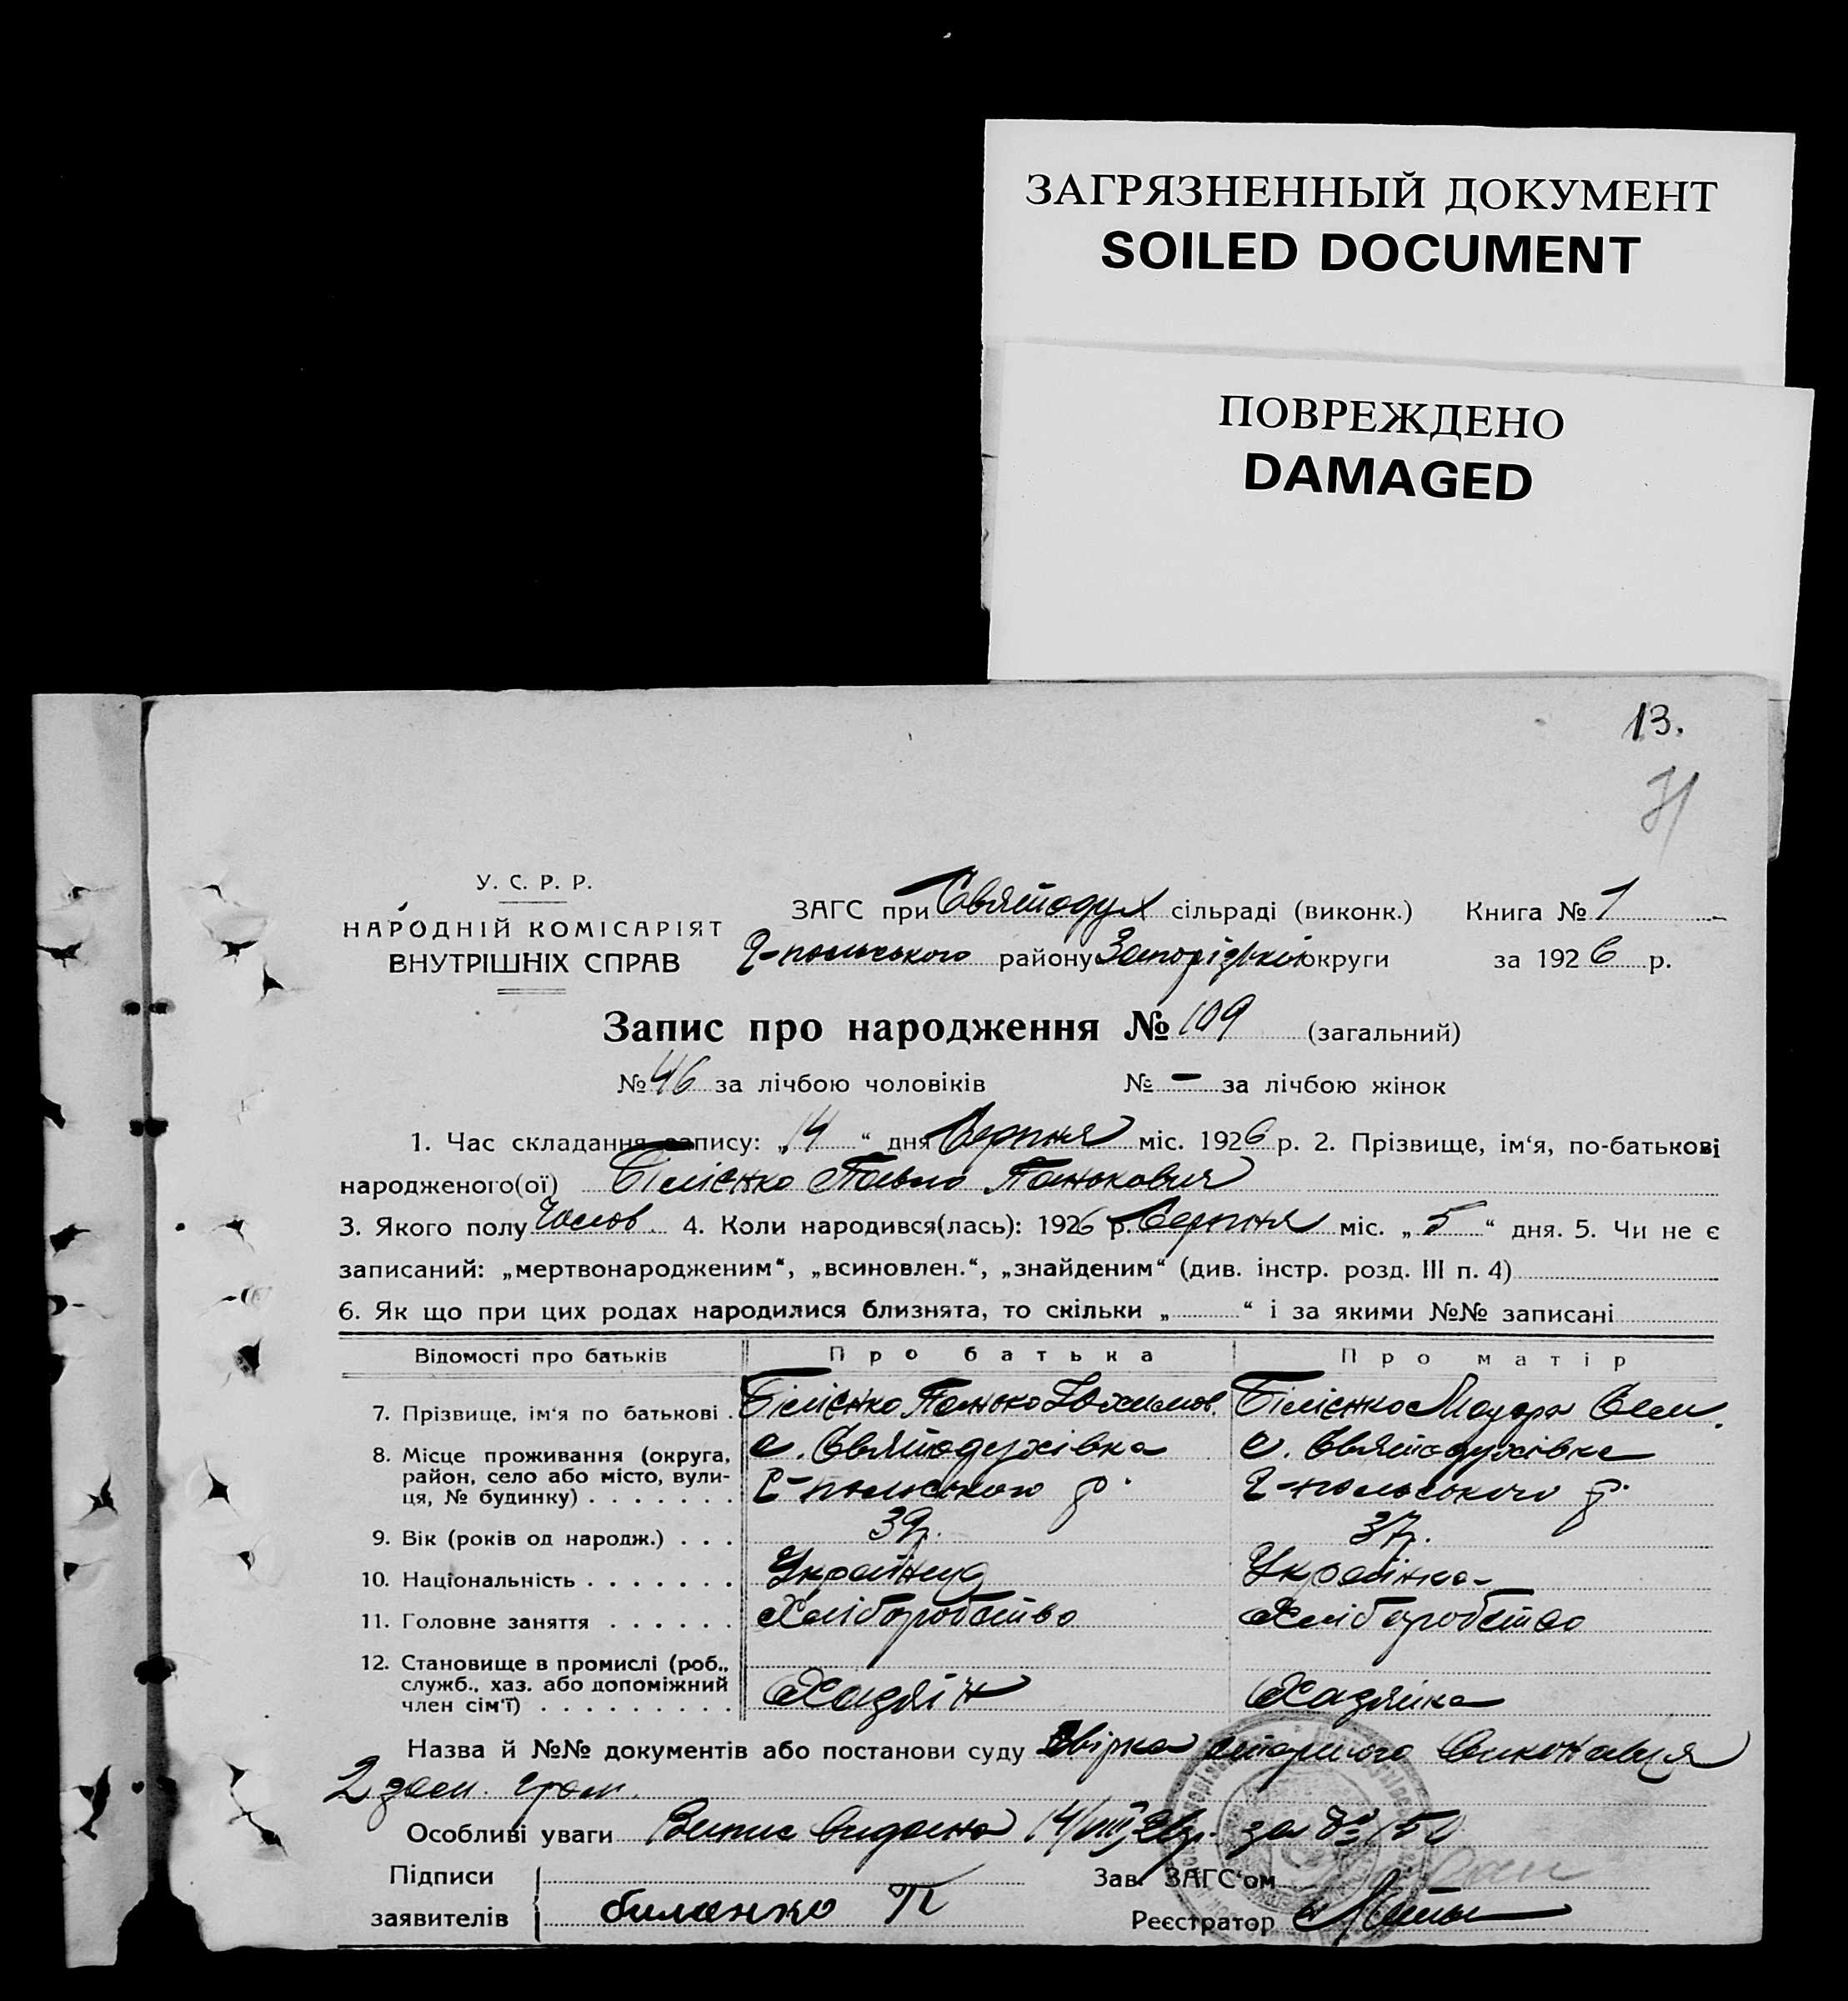 ЗАГРЯЗНЕННЫЙ ДОКУМЕНТ
SOILED DOCUMENT
ПОВРЕЖДЕНО
DAMAGED
13.
У. С. Р. Р.
НАРОДНІЙ КОМІСАРІЯТ
ВНУТРІШНІХ СПРАВ
ЗАГС при Святодух сільраді (виконк.) Книга № 1
Г-польського району Запорізької округи за 1926 р.
Запис про народження № 109 (загальний)
№ 46 за лічбою чоловіків № – за лічбою жінок
1. Час складання запису: „14“ дня Серпня міс. 1926 р. 2. Прізвище, ім‘я, по-батькові
народженого(ої) Білієнко Павло Панькович
3. Якого полу Чолов. 4. Коли народився(лась): 1926 р. Серпня міс. „5“ дня. 5. Чи не є
записаний: „мертвонародженим“, „всиновлен.“, „знайденим“ (див. інстр. розд. III п. 4)
6. Як що при цих родах народилися близнята, то скільки „ “ і за якими №№ записані
Відомості про батьків Про батька Про матір
7. Прізвище, ім‘я по батькові . Білієнко Панько Юхимов. Білієнко Мадора Сем.
8. Місце проживання (округа, с. Святодухівка с. Святодухівка
район, село або місто, вули-
ця, № будинку) . . . . . . . Г-польського р. Г-польського р.
9. Вік (років од народж.) . . . 39р. 37р.
10. Національність . . . . . . . Українец Українка
11. Головне заняття . . . . . . Хліборобство Хліборобство
12. Становище в промислі (роб.,
служб., хаз. або допоміжний
член сім‘ї) . . . . . . . . . Хазяін Хазяйка
Назва й №№ документів або постанови суду Звірка старшого виконавця
2 зем. гром.
Особливі уваги Випис видана 14/VIII 26р. за №
Підписи
заявителів
билэнко П
Зав. ЗАГС‘ом
Реєстратор